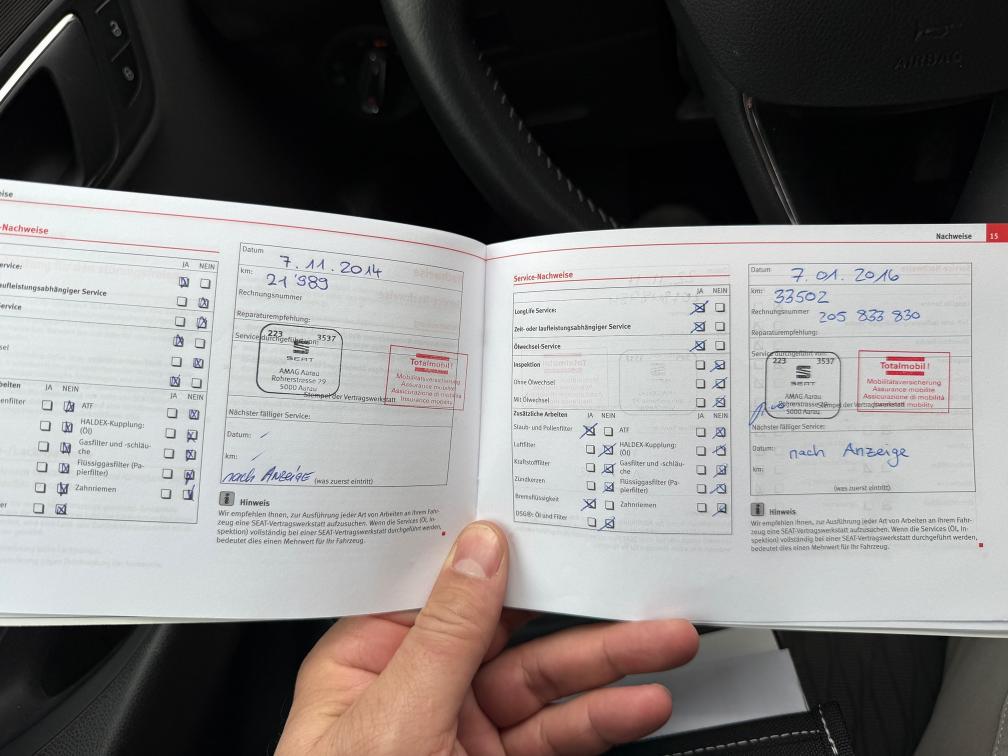 AIRBAG
eise
-Nachweise
JA NEIN
ervice:
aufleistungsabhängiger Service
ervice
sel
beiten
JA NEIN
JA NEIN
enfilter
ATF
HALDEX-Kupplung:
(Öl)
Gasfilter und -schläu-
che
Flüssiggasfilter (Pa-
pierfilter)
Zahnriemen
er
Datum
7. 11. 2014
km:
21'989
Rechnungsnummer
Reparaturempfehlung:
Service durchgeführt von:
223 3537
SEAT
AMAG Aarau
Rohrerstrasse 79
5000 Aarau
Stempel der Vertragswerkstatt
Totalmobil!
Mobilitätsversicherung
Assurance mobilité
Assicurazione di mobilità
Insurance mobility
Nächster fälliger Service:
Datum:
km:
nach Anzeige (was zuerst eintritt)
Hinweis
Wir empfehlen Ihnen, zur Ausführung jeder Art von Arbeiten an Ihrem Fahr-
zeug eine SEAT-Vertragswerkstatt aufzusuchen. Wenn die Services (Öl, In-
spektion) vollständig bei einer SEAT-Vertragswerkstatt durchgeführt werden,
bedeutet dies einen Mehrwert für Ihr Fahrzeug.
Nachweise 15
Service-Nachweise
JA NEIN
LongLife Service:
Zeit- oder laufleistungsabhängiger Service
Ölwechsel-Service
Inspektion
Ohne Ölwechsel
Mit Ölwechsel
Zusätzliche Arbeiten JA NEIN JA NEIN
Staub- und Pollenfilter
Luftfilter
Kraftstofffilter
Zündkerzen
Bremsflüssigkeit
DSG®: Öl und Filter
ATF
HALDEX-Kupplung:
(Öl)
Gasfilter und -schläu-
che
Flüssiggasfilter (Pa-
pierfilter)
Zahnriemen
Datum
7. 01. 2016
km:
33502
Rechnungsnummer
205 833 830
Reparaturempfehlung:
Service durchgeführt von:
223 3537
SEAT
AMAG Aarau
Rohrerstrasse 79
5000 Aarau
Stempel der Vertragswerkstatt
Totalmobil!
Mobilitätsversicherung
Assurance mobilité
Assicurazione di mobilità
Insurance mobility
Nächster fälliger Service:
Datum:
nach Anzeige
km:
(was zuerst eintritt)
Hinweis
Wir empfehlen Ihnen, zur Ausführung jeder Art von Arbeiten an Ihrem Fahr-
zeug eine SEAT-Vertragswerkstatt aufzusuchen. Wenn die Services (Öl, In-
spektion) vollständig bei einer SEAT-Vertragswerkstatt durchgeführt werden,
bedeutet dies einen Mehrwert für Ihr Fahrzeug.